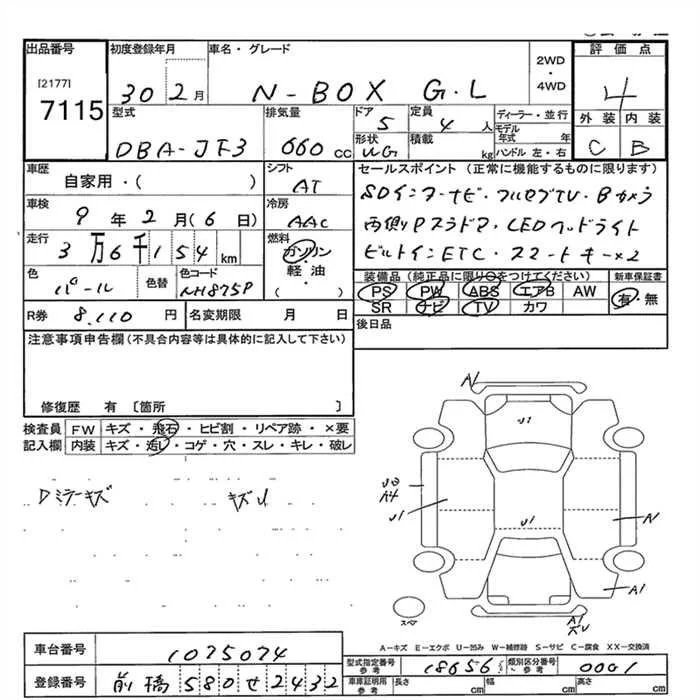 出品番号
[2177]
7115
初度登録年月
30 2月
車名・グレード
N-BOX G・L
2WD
・
4WD
評価点
4
外装 内装
C B
型式
DBA-JF3
排気量
660 CC
ドア
5
定員
4 人
形状
WG
積載
kg
ディーラー・並行
モデル年式 年
ハンドル 左・右
車歴
自家用・( )
シフト
AT
セールスポイント (正常に機能するものに限ります)
SDインターナビ・フルセグTV・Bカメラ
両側Pスラドア・LEDヘッドライト
ビルトインETC・スマートキー×2
車検
9年 2月(6日)
冷房
AAC
走行
3万6千154km
燃料
ガソリン
・
軽油
( )
色
パール
色替
色コード
NH875P
装備品(純正品に限り○をつけてください)
新車保証書
PS PW ABS エアB AW
SR ナビ TV カワ
有・無
R券 8,110 円
名変期限 月 日
後日品
注意事項申告欄(不具合内容等は具体的に記入して下さい)
修復歴 有 〔箇所 〕
検査員 FW キズ・飛石・ヒビ割・リペア跡・×要
記入欄 内装 キズ・汚レ・コゲ・穴・スレ・キレ・破レ
Dミラーキズ キズU
A1
U1
U3
A4
U1
U1
A1
A1
A1
キU
スペア
A-キズ E-エクボ U-凹み W-補修跡 S-サビ C-腐食 XX-交換済
車台番号 1075074
登録番号 前橋 580 せ 2432
型式指定番号 参考 18656
類別区分番号 参考 0001
車庫証明用 参考 長さ cm 幅 cm 高さ cm